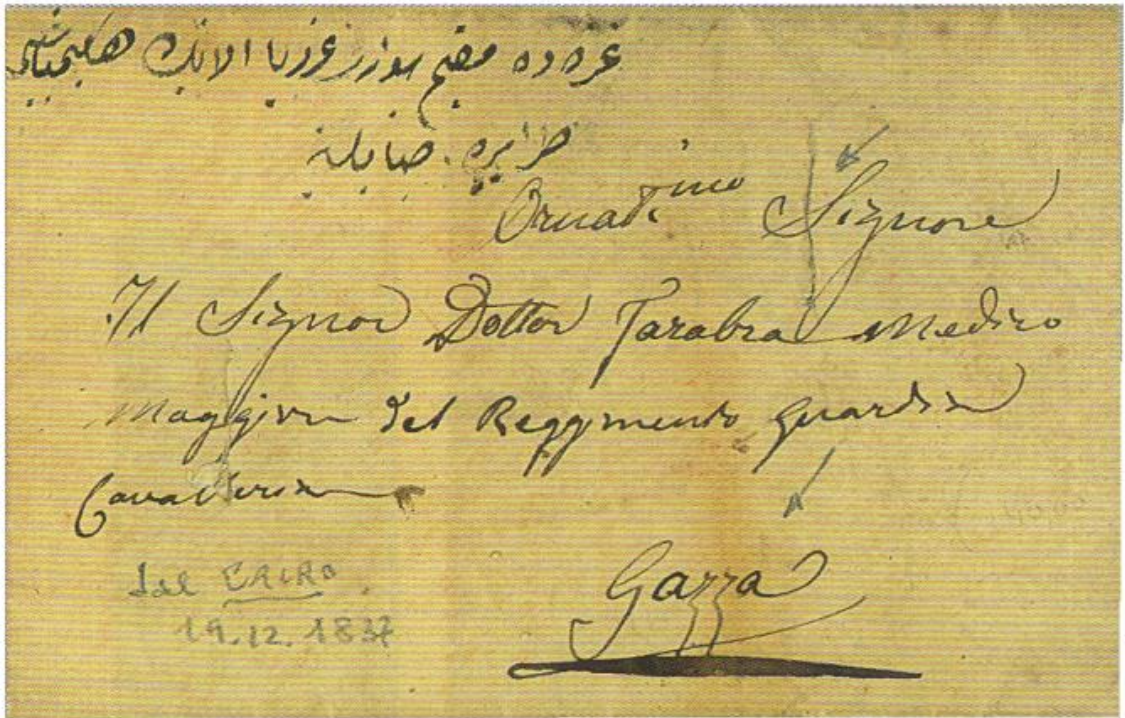 غزه ده مقيم سوارى غرديا الاينك حكيمباشيسى
طرابره
Ornat.imo Signore
Il Signor Dottor Tarabra Medico
Maggiore del Reggimento Guardia
Cavalleria
Gazza
dal CAIRO
19.12.1837